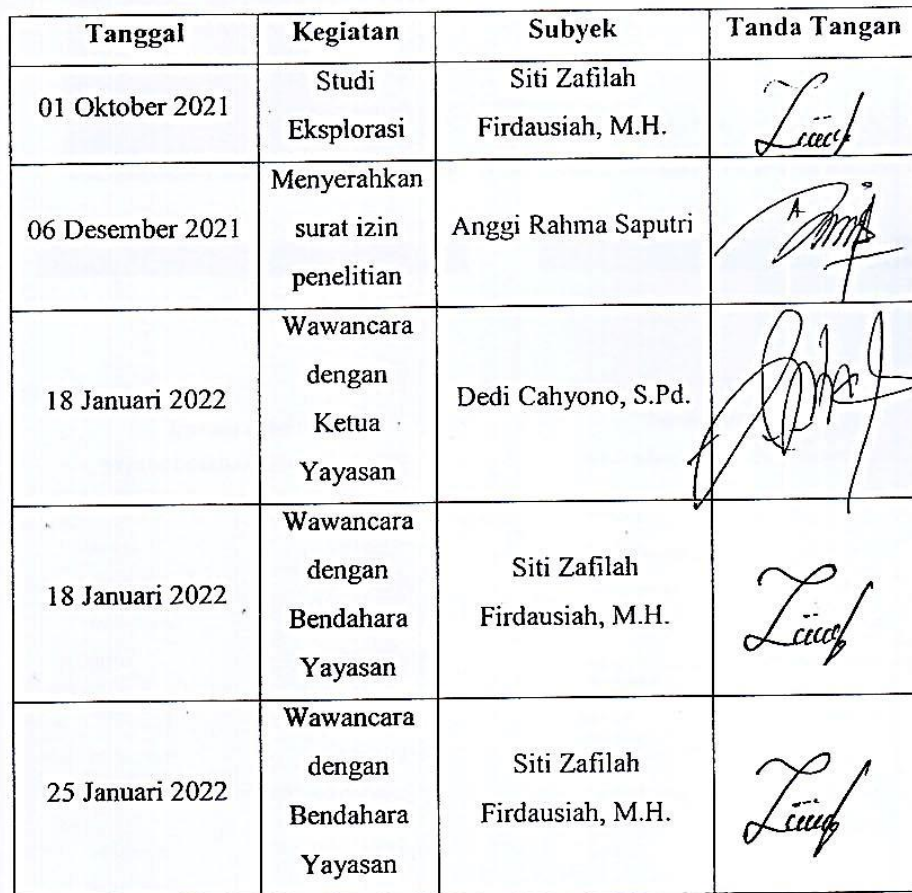 Tanggal Kegiatan Subyek Tanda Tangan
01 Oktober 2021
Studi
Eksplorasi
Siti Zafilah
Firdausiah, M.H.
06 Desember 2021
Menyerahkan
surat izin
penelitian
Anggi Rahma Saputri
18 Januari 2022
Wawancara
dengan
Ketua
Yayasan
Dedi Cahyono, S.Pd.
18 Januari 2022
Wawancara
dengan
Bendahara
Yayasan
Siti Zafilah
Firdausiah, M.H.
25 Januari 2022
Wawancara
dengan
Bendahara
Yayasan
Siti Zafilah
Firdausiah, M.H.